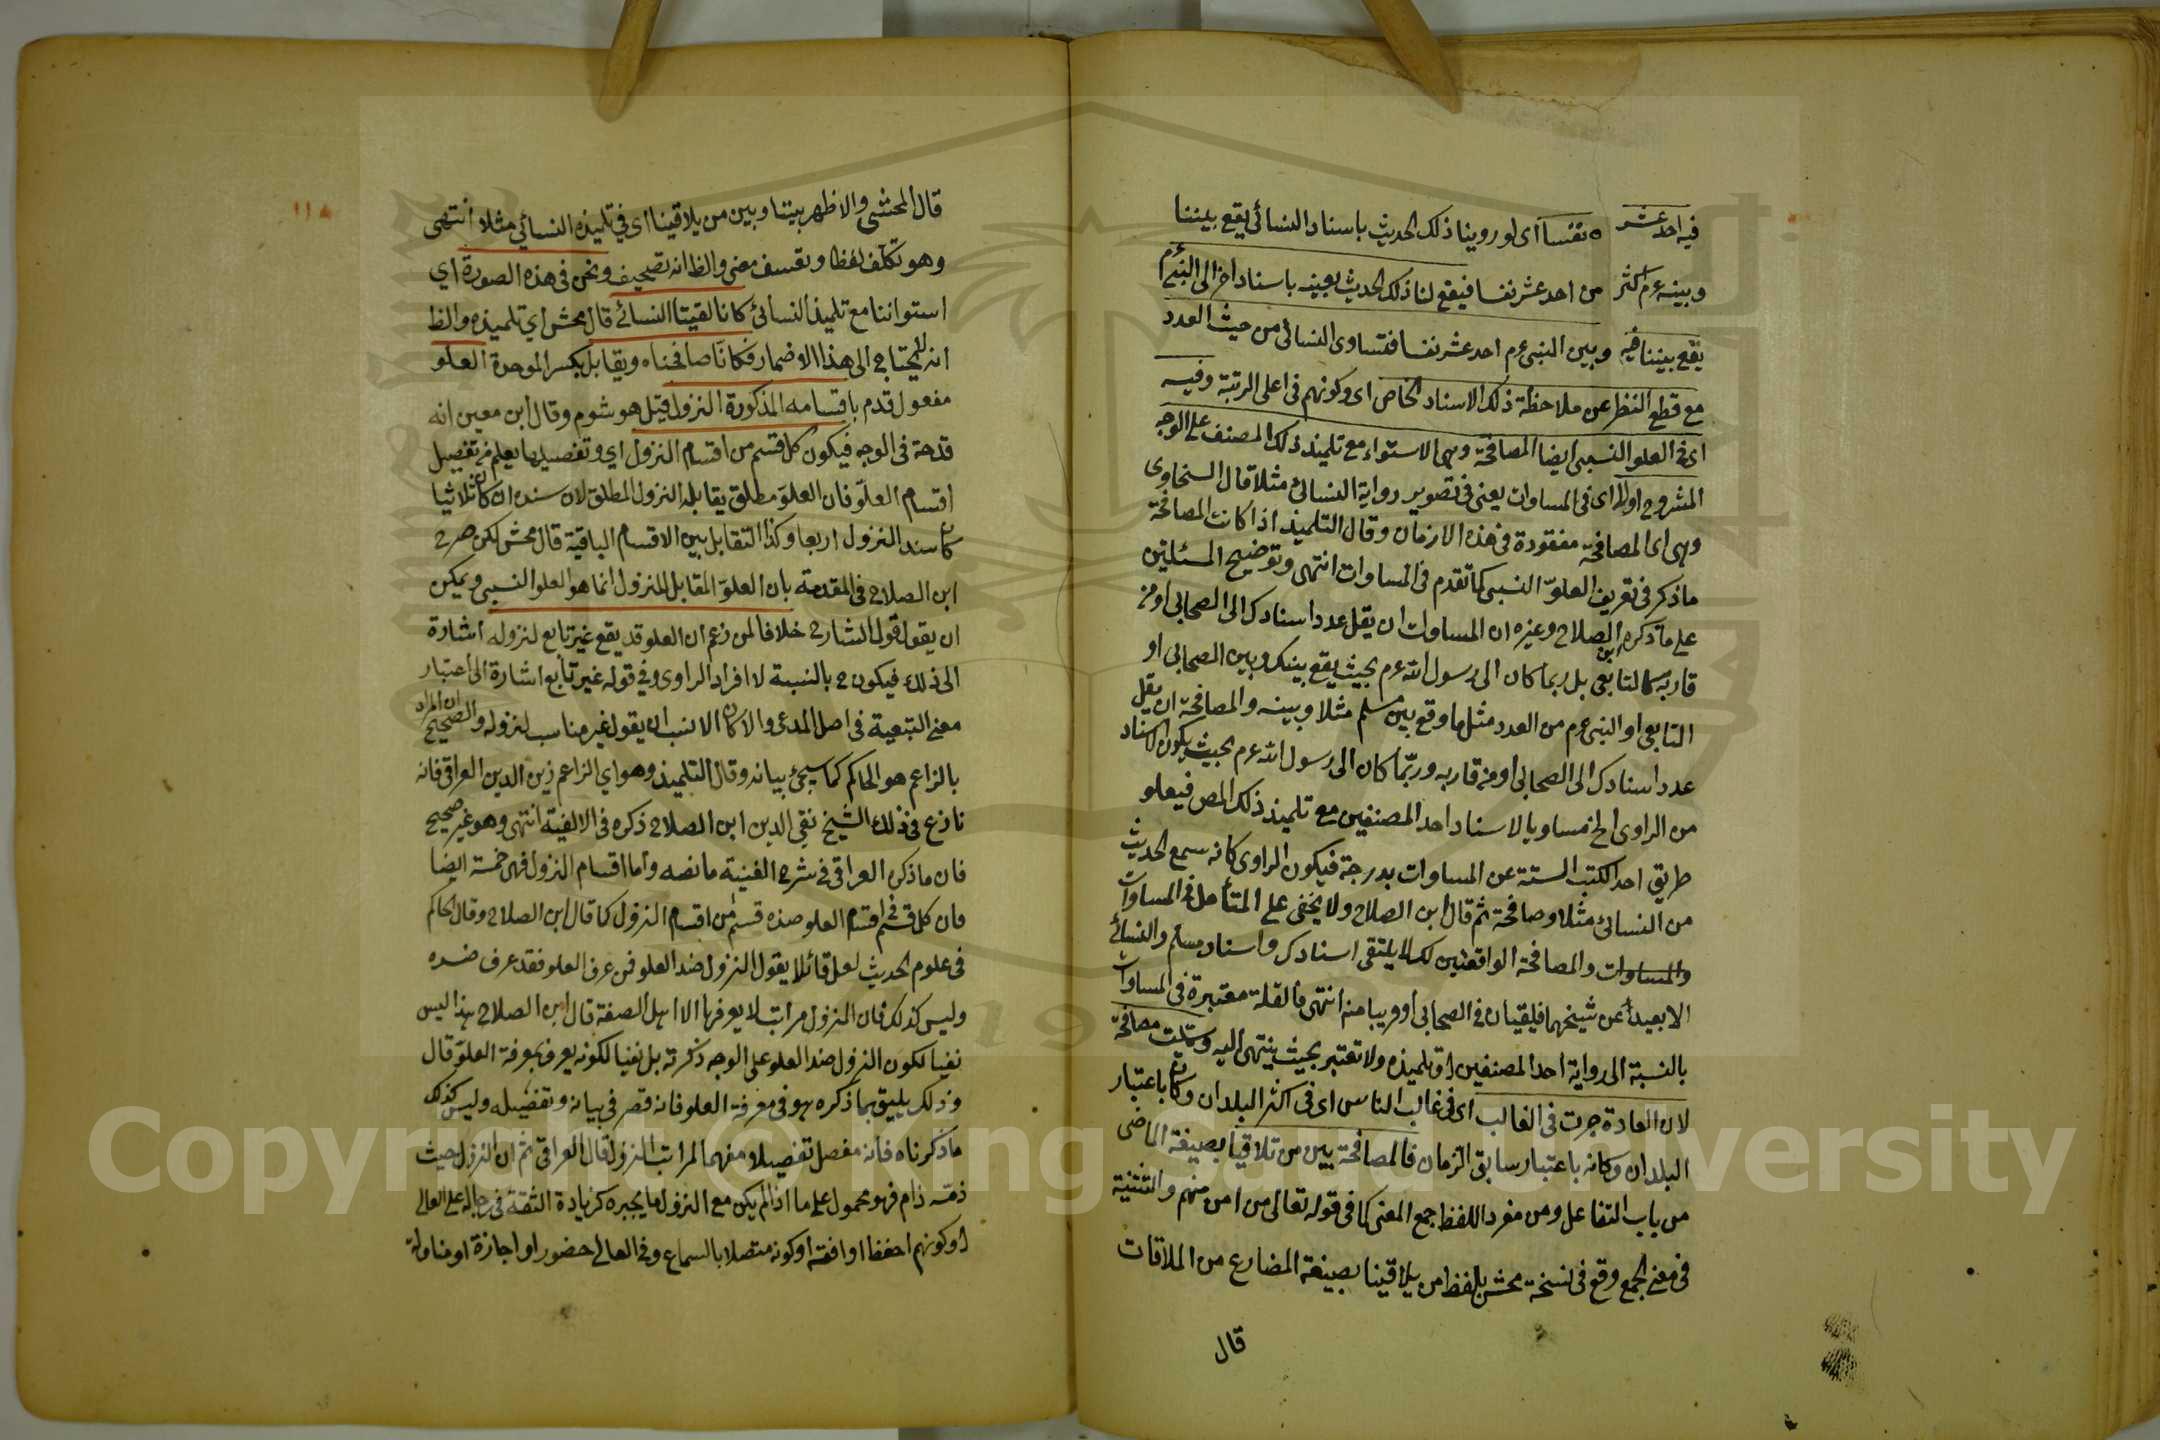 فيه احد عشر ه نفسا اى لو روينا ذلك الحديث باسناد النسائى يقع بيننا
وبينه عم اكثر من احد عشر نفسا فيقع لنا ذلك الحديث بعينه باسناد اخر الى النبى عم
يقع بيننا فيه وبين النبى عم احد عشر نفسا فتساوى النسائى من حيث العدد
مع قطع النظر عن ملاحظة ذلك الاسناد الخاص اى وكونهم فى اعلى الرتبة وفيه
اى فى العلو النسبى ايضا المصافحة وهى الاستواء مع تلميذ ذلك المصنف على الوجه
المشروح اولا اى فى المساوات يعنى فى تصوير رواية النسائى مثلا قال السخاوى
وهى اى المصافحة مفقودة فى هذه الازمان وقال التلميذ اذا كانت المصافحة
ما ذكر فى تعريف العلوّ النسبى كما تقدم فى المساوات انتهى وتوضيح المسئلتين
على ما ذكره ابن الصلاح وغيره ان المساوات ان يقل عدد اسنادك الى الصحابى او من
قاربه كالتابعى بل ربما كان الى رسول الله عم بحيث يقع بينك وبين الصحابى او
التابعى او النبى عم من العدد مثل ما وقع بين مسلم مثلا وبينه والمصافحة ان يقل
عدد اسنادك الى الصحابى او من قاربه وربّما كان الى رسول الله عم بحيث يكون الاسناد
من الراوى الخ مساويا لاسناد احد المصنفين مع تلميذ ذلك المص فيعلو
طريق احد الكتب الستة عن المساوات بدرجة فيكون الراوى كانه سمع الحديث
من النسائى مثلا وصافحة ثم قال ابن الصلاح ولا يخفى على المتأمل فى المساوات
والمساوات والمصافحة الواقعتين لك لا يلتقى اسنادك واسناد مسلم والنسائى
الا بعيدا عن شيخهما فيلتقيان فى الصحابى او قريبا منه انتهى فالقلة معتبرة فى المساوات
بالنسبة الى رواية احد المصنفين او تلميذه ولا تعتبر بحيث ينتهى اليه وسمّيت مصافحة
لان العادة جرت فى الغالب اى فى غالب الناس اى فى اكثر البلدان وكانّ باعتبار
البلدان وكانه باعتبار سابق الزمان فالمصافحة بين من تلاقيا بصيغة الماضى
من باب التفاعل ومن مفرد اللفظ جمع المعنى كما فى قوله تعالى من امن منهم والتثنية
فى معنى الجمع وقع فى نسخة محش بلفظ من يلاقينا بصيغة المضارع من الملاقات
قال
١١٨
قال المحشى والاظهر بيننا وبين من يلاقينا اى فى تلميذه النسائي مثلا انتهى
وهو تكلّف لفظا وتعسف معنى والظ انه تصحيف ونحن فى هذه الصورة اي
استوائنا مع تلميذ النسائى كانا لقينا النسائے قال محش اي تلميذه والظ
انه لا يحتاج الى هذا الاضمار فكانّا صافحناه ويقابل بكسر الموحدة العلو
مفعول قدم باقسامه المذكورة النزول قيل هو شوم وقال ابن معين انه
قدحة فى الوجه فيكون كل قسم من اقسام النزول اي وتفصيلها يعلم من تفصيل
اقسام العلوّ فان العلوّ مطلق يقابله النزول المطلق لان سنده ان كان ثلاثيا
كان سند النزول اربعا وكذا التقابل بين الاقسام الباقية قال محش لكن صرح
ابن الصلاح فى المقدمة بان العلوّ المقابل للنزول انما هو العلو النسبى ويمكن
ان يقول قول الشارح خلافا لمن زعم ان العلو قد يقع غير تابع لنزوله اشارة
الى ذلك فيكون ح بالنسبة لا افراد الراوى وفي قوله غير تابع اشارة الى اعتبار
معنى التبعية فى اصل المدعى والا كان الانسب ان يقول غير مناسب لنزوله والصحيح ان المراد
بالزاعم هو الحاكم كما سيجئ بيانه وقال التلميذ وهو اي الزاعم زين الدين العراقى فانه
نازع فى ذلك الشيخ تقي الدين ابن الصلاح ذكره فى الالفية انتهى وهو غير صحيح
فان ما ذكره العراقى فى شرح الفيته ما نصه واما اقسام النزول فهى خمسة ايضا
فان كل قسم فى اقسام العلو ضده قسم من اقسام النزول كما قال ابن الصلاح وقال الحاكم
فى علوم الحديث لعل قائلا يقول النزول ضد العلو فمن عرف العلو فقد عرف ضده
وليس كذلك فان للنزول مراتب لا يعرفها الا اهل الصنعة قال ابن الصلاح هذا ليس
نفيا لكون النزول ضد العلو على الوجه ذكرته بل نفيا لكونه يعرف بمعرفة العلوّ قال
وذلك يليق بما ذكره هو فى معرفة العلو فانه قصر فى بيانه وتفصيله وليس كذلك
ما ذكرناه فانه مفصل تفصيلا مفهما لمراتب النزول قال العراقى ثم ان النزول حيث
ذمّه ذام فهو محمول على ما اذا لم يكن مع النزول ما يجبره كزيادة الثقة فى رجاله على العالى
او كونهم احفظ او افقه او كونه متصلا بالسماع وفى العالى حضور او اجازة او مناولة